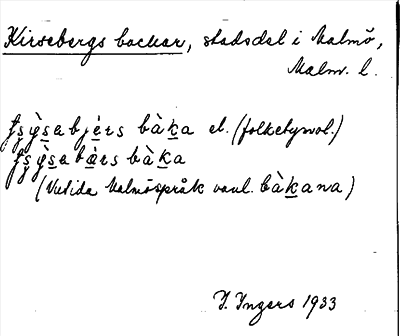 Kirsebergs backar, stadsdel i Malmö,
Malm. l.
bà̱ka el. (folketymol.)
bà̱ka
(Nutida Malmöspråk vanl. bàḵana)
I. Ingers 1933